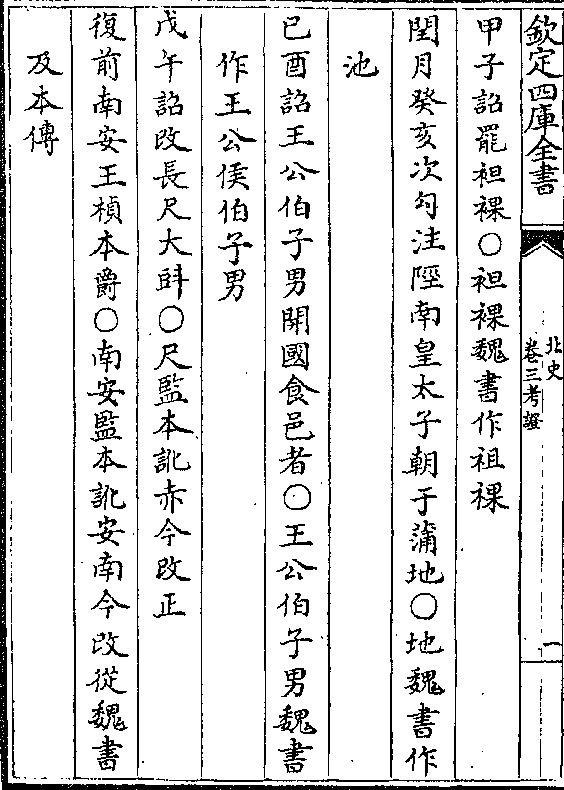 欽定四庫全書
北史
卷三考證
一
甲子詔罷袒裸○袒裸魏書作祖裸
閏月癸亥次勾注陘南皇太子朝于蒲地○地魏書作
池
已酉詔王公伯子男開國食邑者○王公伯子男魏書
作王公侯伯子男
戊午詔改長尺大㪷○尺監本訛赤今改正
復前南安王楨本爵○南安監本訛安南今改從魏書
及本傳